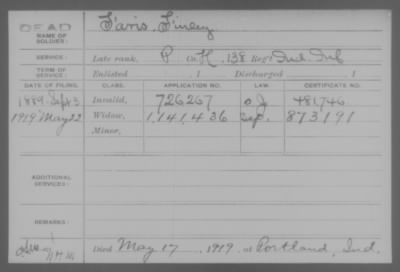 DEAD
NAME OF SOLDIER:
Faris, Finley
SERVICE:
Late rank, P Co. H, 138 Reg't Ind. Inf
TERM OF SERVICE:
Enlisted , 1 Discharged , 1
DATE OF FILING. CLASS. APPLICATION NO. LAW. CERTIFICATE NO.
1889 Sept 3 Invalid, 726267 o.J 481746
1919 May 22 Widow, 1,141,436 873191
Minor,
ADDITIONAL SERVICES:
REMARKS:
Died May 17, 1919, at Portland, Ind.